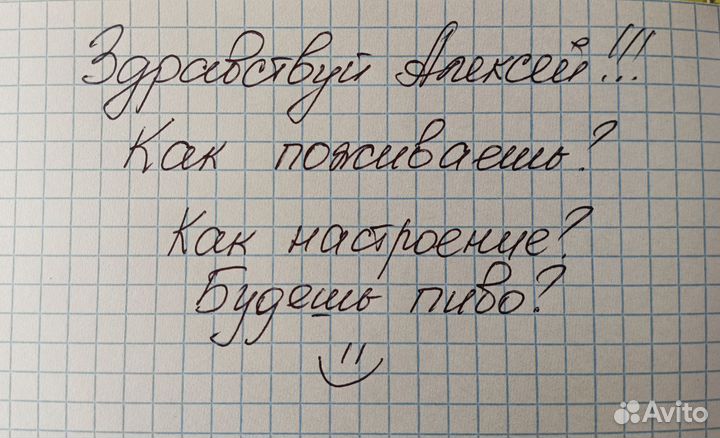 Здравствуй Алексей!!!
Как поживаешь?
Как настроение?
Будешь пиво?
Avito